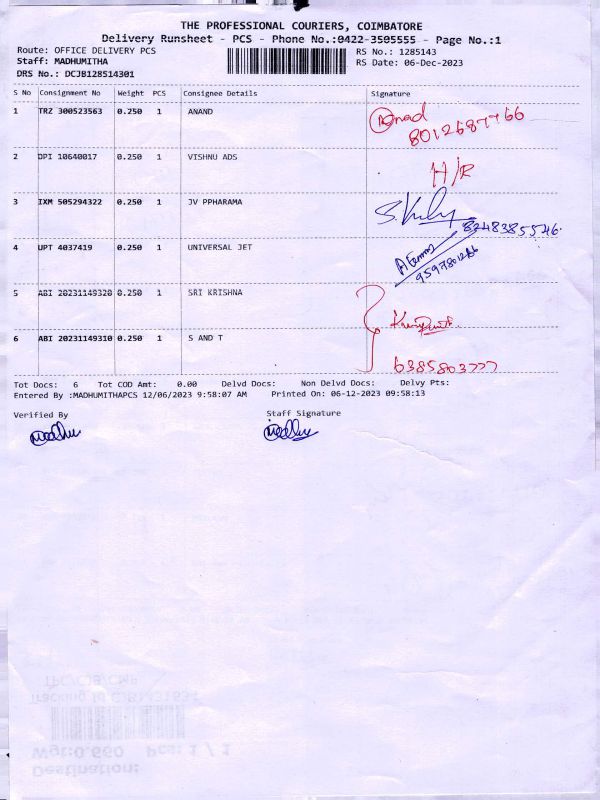 THE PROFESSIONAL COURIERS, COIMBATORE
Delivery Runsheet - PCS - Phone No.:0422-3505555 - Page No.:1
Route: OFFICE DELIVERY PCS RS No.: 1285143
Staff: MADHUMITHA RS Date: 06-Dec-2023
DRS No.: DCJB128514301
S No Consignment No Weight PCS Consignee Details Signature
1 TRZ 300523563 0.250 1 ANAND Anad
8012687766
2 DPI 10640017 0.250 1 VISHNU ADS H/R
3 IXM 505294322 0.250 1 JV PPHARAMA
8248385546.
4 UPT 4037419 0.250 1 UNIVERSAL JET
5 ABI 20231149320 0.250 1 SRI KRISHNA
6 ABI 20231149310 0.250 1 S AND T
6385803777
Tot Docs: 6 Tot COD Amt: 0.00 Delvd Docs: Non Delvd Docs: Delvy Pts:
Entered By :MADHUMITHAPCS 12/06/2023 9:58:07 AM Printed On: 06-12-2023 09:58:13
Verified By Staff Signature
Madhu Madhu
TPC/CJB/CMP
Wgt:0.660 Pcs: 1 / 1
Destination: